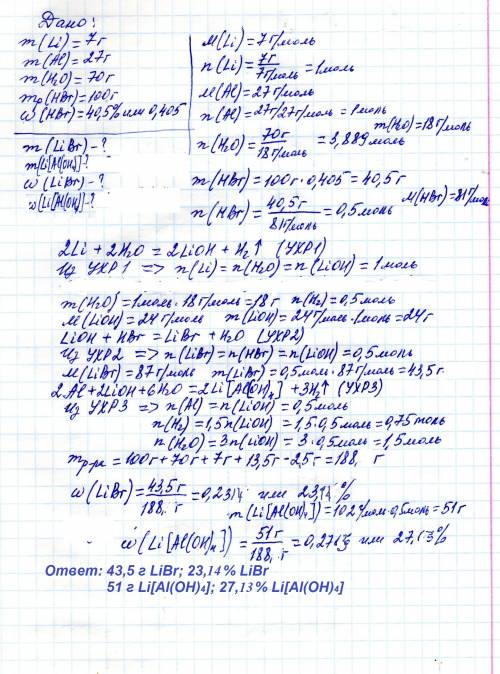 Дано:
m(Li)=7г
m(Al)=27г
m(H₂O)=70г
mр(HBr)=100г
ω(HBr)=40,5% или 0,405
m(LiBr)-?
m(Li[Al(OH)₄]-?
ω(LiBr)-?
ω(Li[Al(OH)₄]-?
M(Li)=7г/моль
n(Li)=7г/7г/моль=1моль
M(Al)=27г/моль
n(Al)=27г/27г/моль=1моль
n(H₂O)=70г/18г/моль=3,889моль m(H₂O)=18г/моль
m(HBr)=100г·0,405=40,5г
n(HBr)=40,5г/81г/моль=0,5моль M(HBr)=81г/моль
2Li+2H₂O=2LiOH+H₂↑ (УХР1)
Из УХР1 => n(Li)=n(H₂O)=n(LiOH)=1моль
m(H₂O)=1моль·18г/моль=18г n(H₂)=0,5моль
M(LiOH)=24г/моль m(LiOH)=24г/моль·1моль=24г
LiOH+HBr=LiBr+H₂O (УХР2)
Из УХР2 => n(LiBr)=n(HBr)=n(LiOH)=0,5моль
M(LiBr)=87г/моль m(LiBr)=0,5моль·87г/моль=43,5г
2Al+2LiOH+6H₂O=2Li[Al(OH)₄]+3H₂↑ (УХР3)
Из УХР3 => n(Al)=n(LiOH)=0,5моль
n(H₂)=1,5n(LiOH)=1,5·0,5моль=0,75моль
n(H₂O)=3n(LiOH)=3·0,5моль=1,5моль
mр-ра=100г+70г+7г+13,5г-2,5г=188, г
ω(LiBr)=43,5г/188, г=0,2314 или 23,14%
m(Li[Al(OH)₄])=102г/моль·0,5моль=51г
ω(Li[Al(OH)₄])=51г/188, г=0,2713 или 27,13%
Ответ: 43,5 г LiBr; 23,14% LiBr
51 г Li[Al(OH)₄]; 27,13% Li[Al(OH)₄]